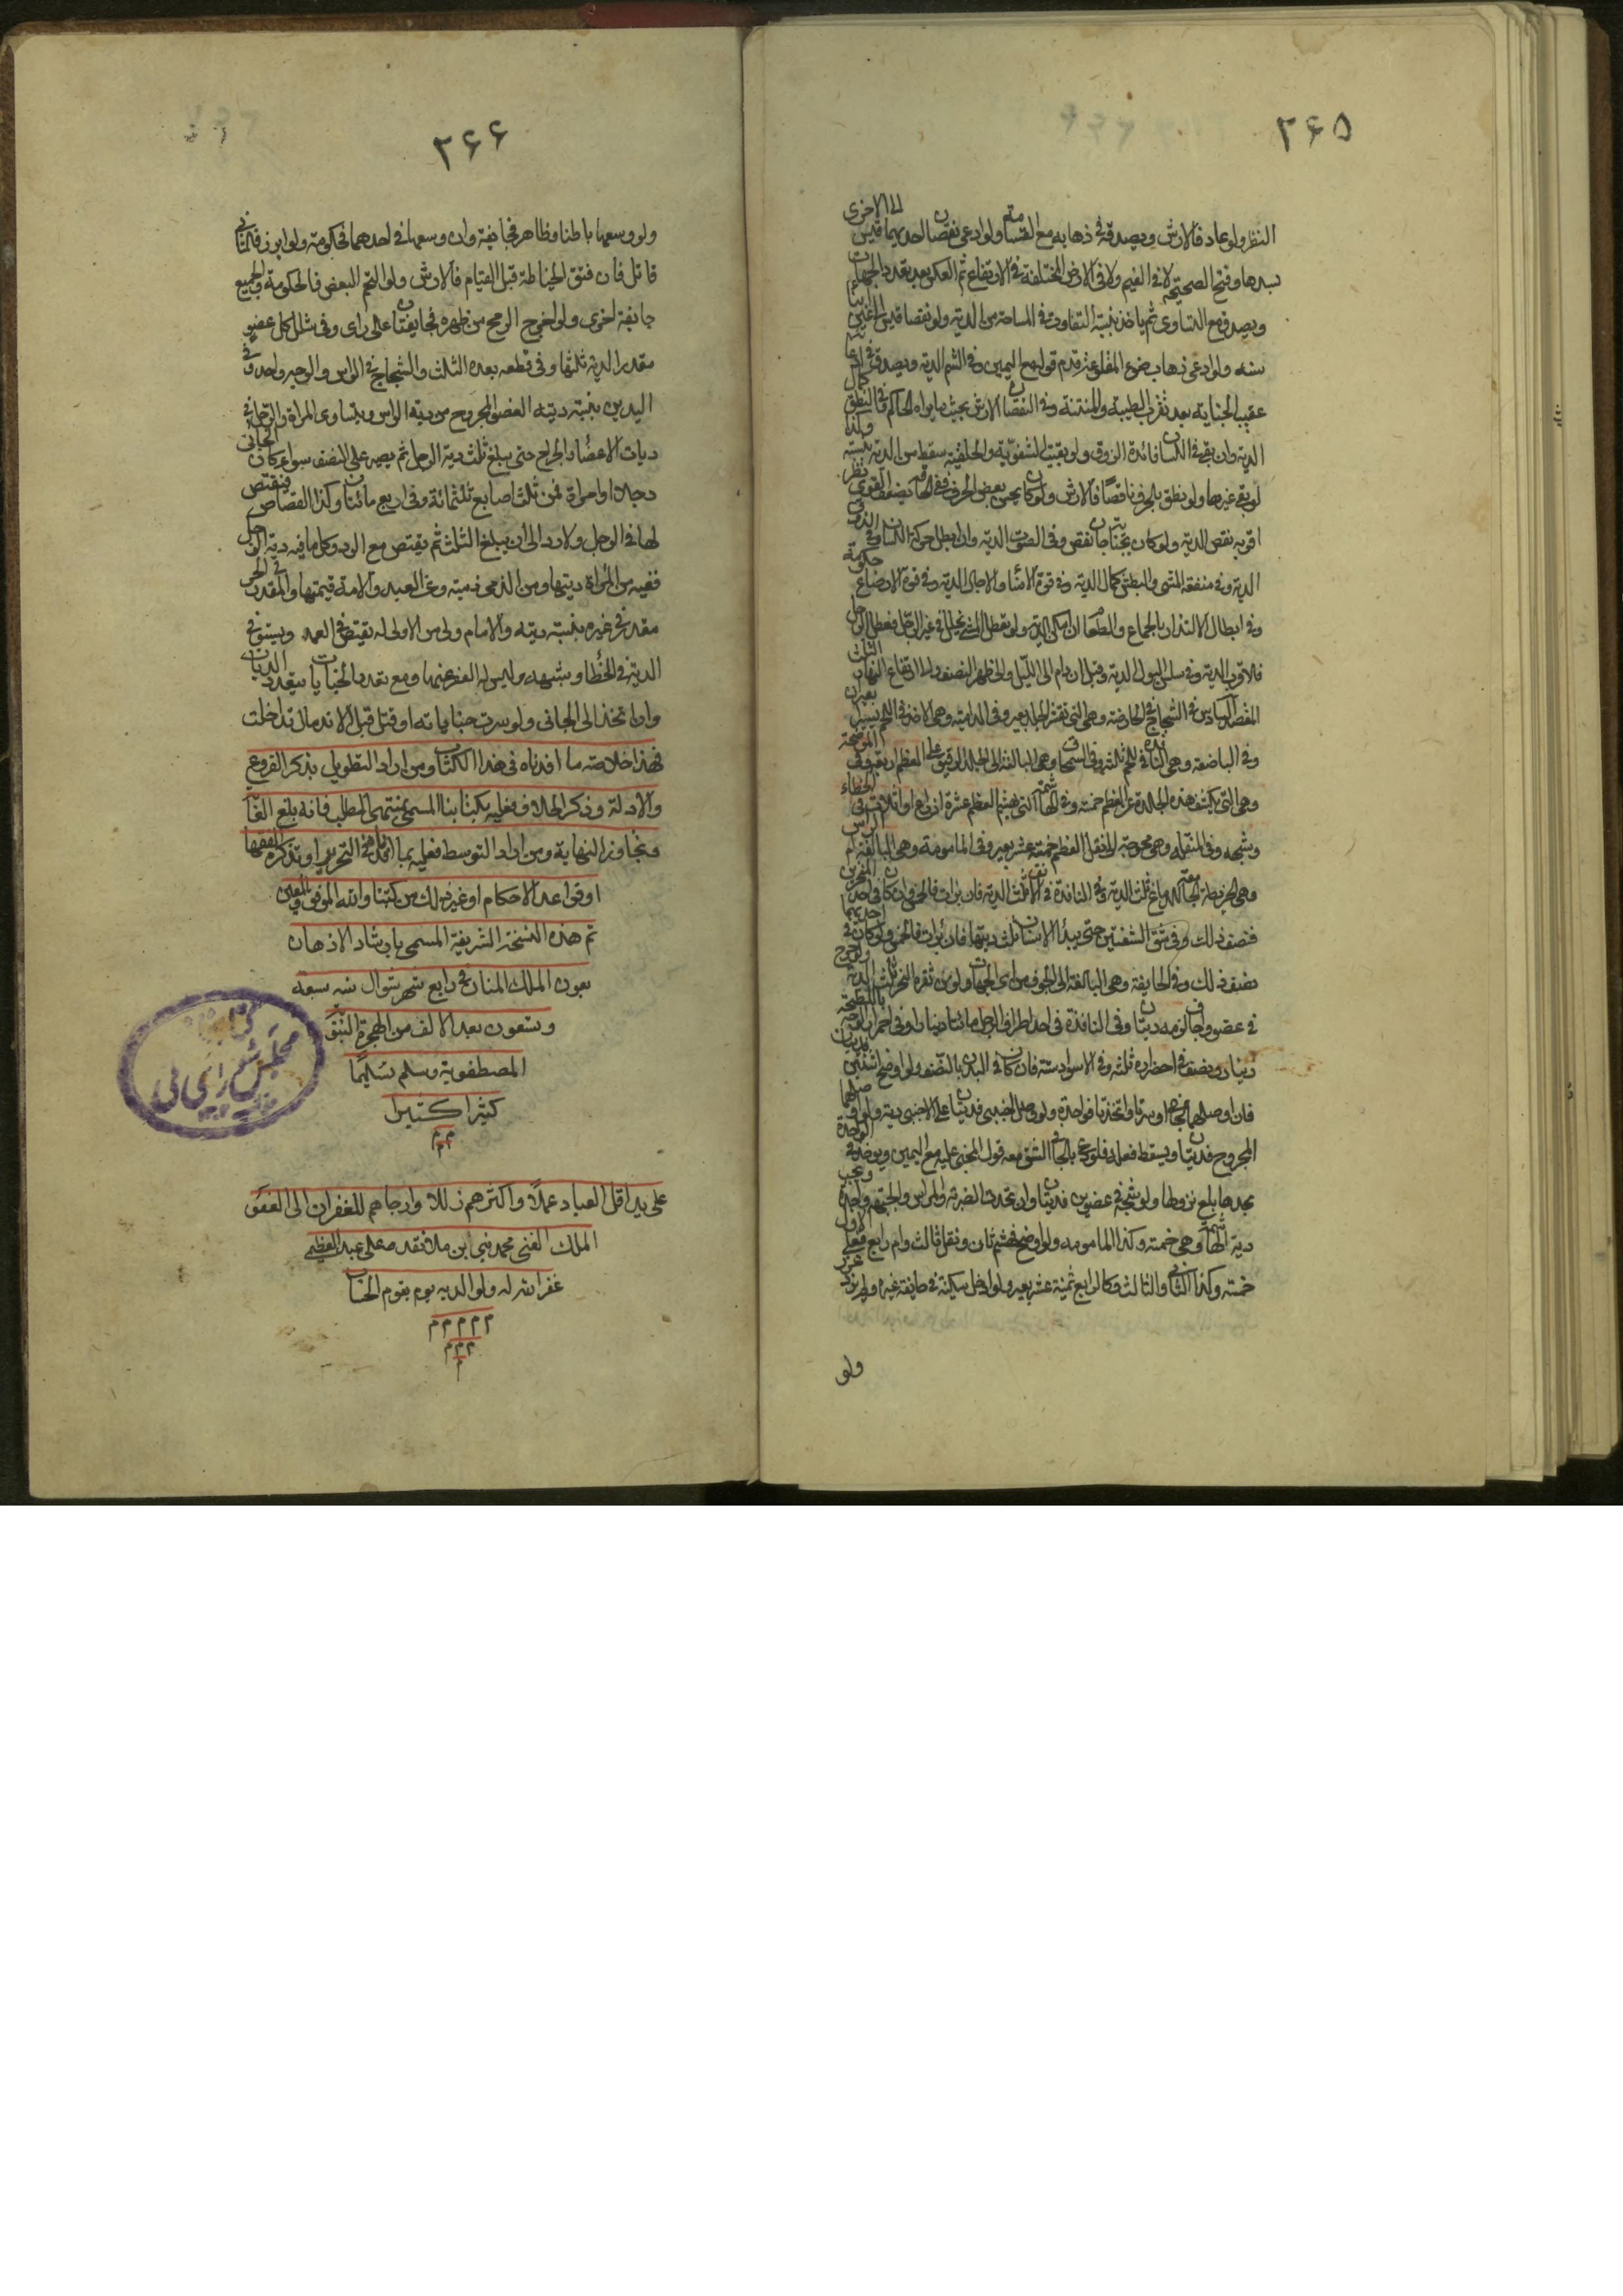 ٢۶۵
النظر ولو عاد فالارش ويصدق في ذهابه مع القسامة ولو ادعى نقصان احديهما قيس الى الاخرى
بسدها وفتح الصحيحة لا في الغيم ولا في الارض المختلفة في الارتفاع ثم العكس بعد تعدد الجهات
ويصدق مع التساوي ثم ياخذ بنسبة التفاوت في المساحة من الدية ولو نقصا قيس الى عين ابناء
سنه ولو ادعى ذهاب ضوء المقلوعة قدم قوله مع اليمين وفي الشم الدية ويصدق في ادعائه
عقيب الجناية بعد تقريب الطيبة والمنتنة وفي النقصان الارش بحسب ما يراه الحاكم وفي النطق كمال
الدية وان بقي في اللسان فائدة الذوق ولو بقيت الشفوية والحلقية سقط من الدية بنسبته وكذا
لو بقي غيرها ولو نطق بالحرف ناقصا فالارش ولو كان يحسن بعض الحروف ففي الحاقه بضعيف القوى نظر
اقربه نقص الدية ولو كان بجناية جان نقص وفي الصوت الدية وان ابطل حركة اللسان وفي الذوق
الدية وفي منفعة المشي والبطش كمال الدية وفي قوة الامناء والاحبال الدية وفي قوة الارضاع حكومة
وفي ابطال الالتذاذ بالجماع والطعام ان امكن الدية ولو تعطل المشي بخلل في غير الرجل فعطل الرجل
فالاقرب الدية وفي سلس البول الدية وقيل ان دام الى الليل والى الظهر النصف والى ارتفاع النهار الثلث
الفصل السادس في الشجاج في الحارصة وهي التي تقشر الجلد بعير وفي الدامية وهي الاخذ في اللحم يسيرا بعيران
وفي الباضعة وهي النافذة في اللحم ثلثة وفي السمحاق وهي البالغة الى الجلد الدقيق على العظم اربعة وفي الموضحة
وهي التي يكشف هذه الجلدة عن العظم خمسة وفي الهاشمة التي يهشم العظم عشرة ارباعا او اثلاثا في الخطاء
وشبهه وفي المنقلة وهي محوجة الى نقل العظم خمسة عشر بعير وفي المامومة وهي البالغة ام الراس
وهي الخريطة الجامعة للدماغ ثلث الدية وفي النافذة في الانف ثلث الدية فان برات فالخمس وان كان في احد المنخرين
فنصف ذلك وفي شق الشفتين حتى يبدأ الاسنان ثلث ديتها فان برات فالخمس ولو كان في احديهما
نصف ذلك وفي الجايفة وهي البالغة الى الجوف من اي الجهات ولو من ثغرة النحر ثلث الدية ولو جرح
في عضو واجاف لزمه ديتان وفي النافذة في احد اطراف الرجل مائة دينار وفي احمرار الوجه باللطمة
دينار ونصف وفي اخضراره ثلثة وفي الاسوداد ستة فان كان في البدن بالنصف ولو اوضح اثنتين فديتان
فان اوصلهما الجاني او سرتا واتحدتا فواحدة ولو وصل اجنبي فديتان على الاجنبي دية ولو اوصلهما
المجروح فديتان ويسقط فعله فلو ادعى الجاني الشق معه قول المجني عليه مع اليمين ويوخذ في الواحدة
بحدها بلغ نزولها ولو شجه في عضوين فديتان وان تحدت الضربة والراس والجبهة واحدة ويجب
دية الهاشمة وهي خمسة وكذا المامومه ولو اوضح فهشم ثان ونقل ثالث وام رابع فعلى الاول
خمسة وكذا الثاني والثالث وكالرابع ثمنية عشر بعير ولو ادخل سكينة في جايفة غيره ولم يزد عزر
ولو
٢۶۶
ولو وسعها باطنا وظاهرا فجايفة وان وسعها في احدهما فحكومة ولو ابرز فالثاني
قاتل فان فتق الخياطة قبل القيام فالارش ولو التحم البعض فالحكومة والجميع
جايفة اخرى ولو اخرج الرمح من ظهره فجايفتان على راى وفي شلل كل عضو
مقدر الدية ثلثها وفي قطعه بعده الثلث والشجاج في الراس والوجه واحد وفي
اليدين بنسبة دية العضو المجروح من دية الراس ويتساوى المراة والرجل في
ديات الاعضاء والجراح حتى يبلغ ثلث دية الرجل ثم يصير على النصف سواء كان الجاني
رجلا او امراة فمن ثلث اصابع ثلثمائة وفي اربع مائتان وكذا القصاص فيقتص
لها في الرجل ولا رد الى ان يبلغ الثلث ثم يقتص مع الرد وكل ما فيه دية الرجل
ففيه من المراة ديتها ومن الذمي دميته وعن العبد والامة قيمتها والمقدر في الحر
مقدر في غيره بنسبة ديته والامام ولي من لا ولى له يقتص في العمد ويستوفي
الدية في الخطا وشبهه وليس له العفو عنهما ومع تعدد الجنايات يتعدد الديات
وان اتخذ الى الجاني ولو سرت جناياته او قتل قبل الاندمال تداخلت
فهذا خلاصة ما افدناه في هذا الكتاب ومن اراد التطويل بذكر الفروع
والادلة وذكر الخلاف فعليه بكتابنا المسمى بمنتهى المطلب فانه بلغ الغاية
وتجاوز النهاية ومن اراد التوسط فعليه بما افدناه في التحرير او تذكرة الفقهاء
او قواعد الاحكام او غير ذلك من كتبنا والله الموفق والمعين
تم هذه النسخة الشريفة المسمى بارشاد الاذهان
بعون الملك المنان في رابع شهر شوال سنه سبعة
وستعون بعد الالف من الهجرة النبوية
المصطفوية وسلم تسليما
كثيرا كثيرا
م م م
على يد اقل العباد عملا واكثرهم زللا وارجاهم للغفران الى العفو
الملك الغنى محمد نبي ابن ملا نقد على عبد العظيم
غفر الله له ولوالديه يوم يقوم الحساب
م م م م م
م م م
م
مجلس شورای ملی